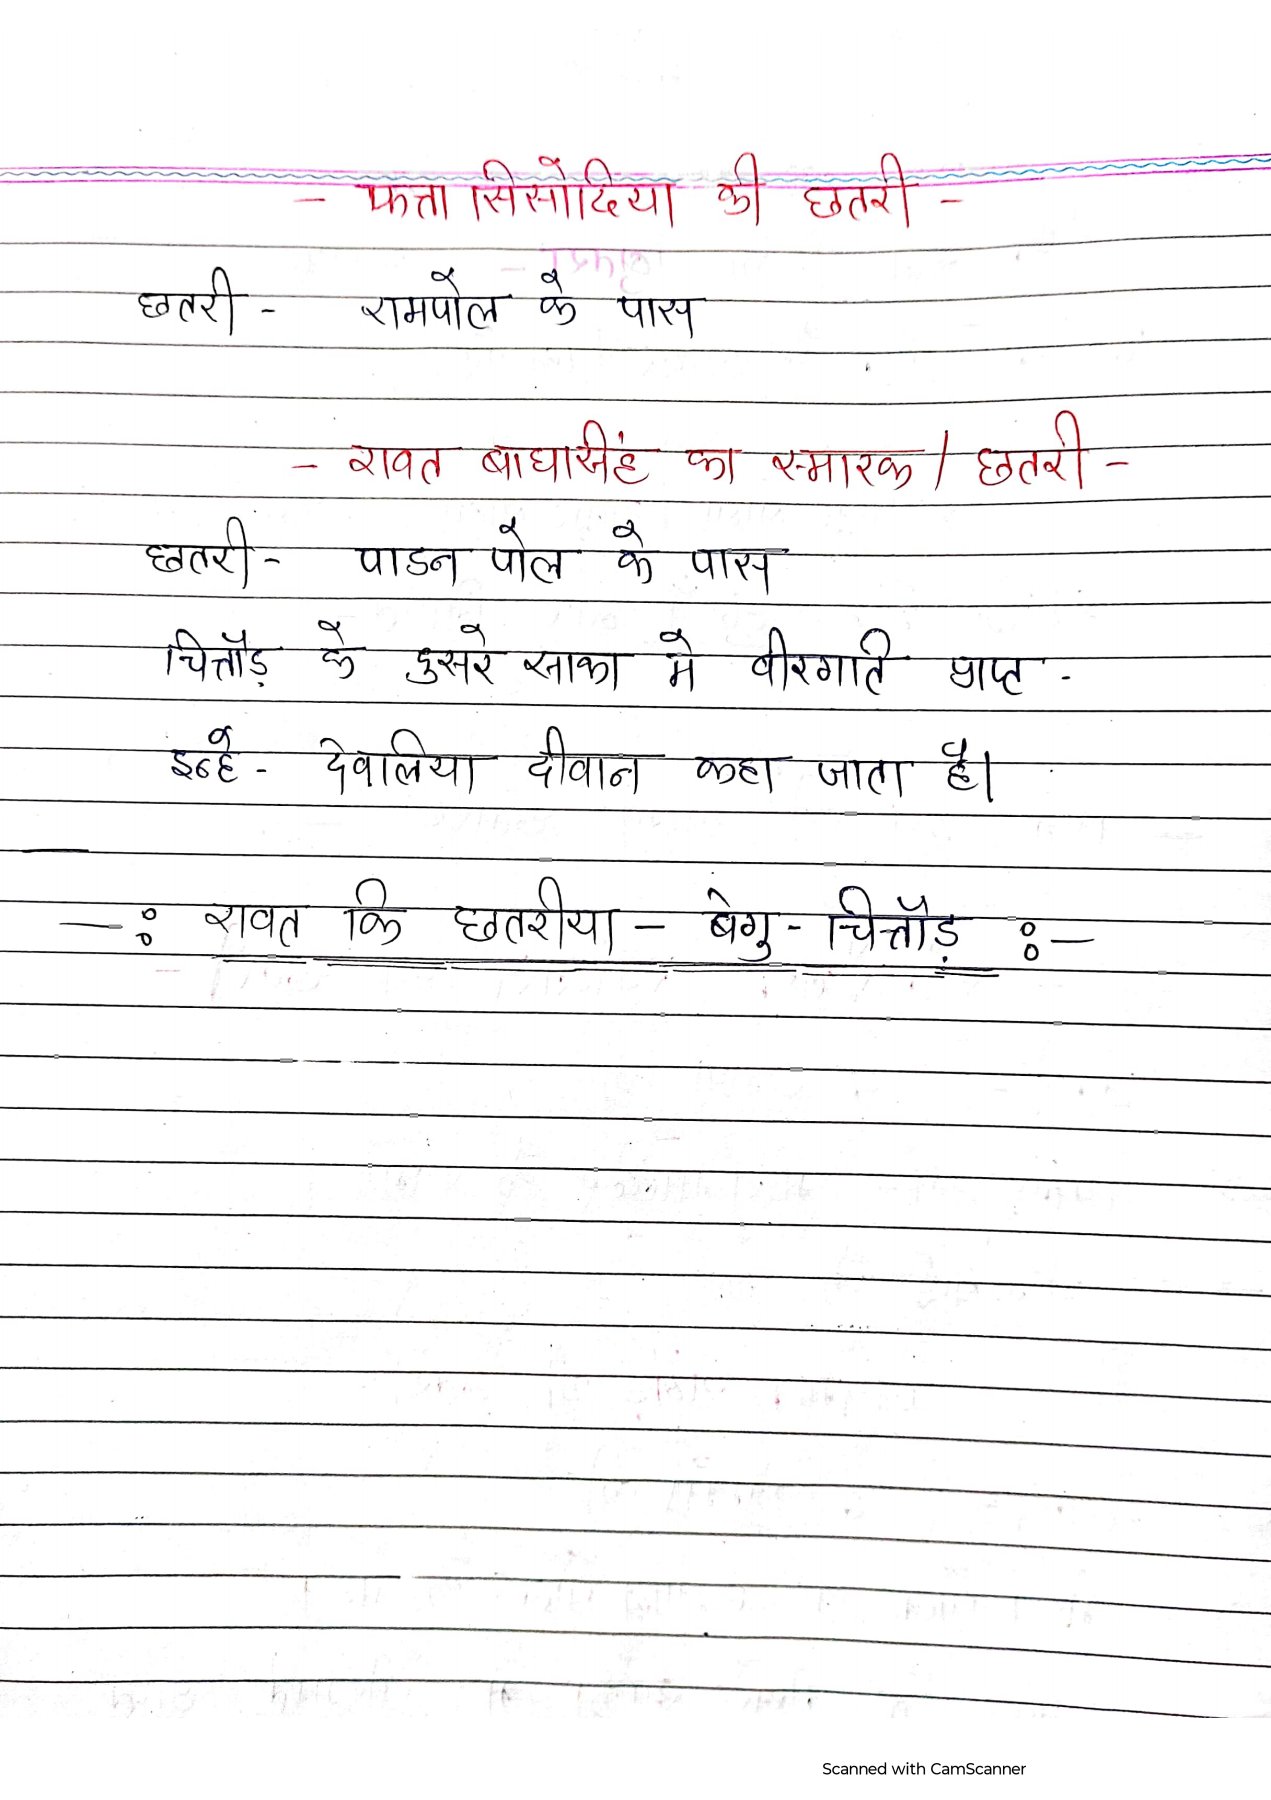 - फत्ता सिसोदिया की छतरी -
छतरी - रामपोल के पास
- रावत बाघासिंह का स्मारक / छतरी -
छतरी - पाडन पोल के पास
चित्तौड़ के दुसरे साका मे वीरगति प्राप्त -
इन्हे - देवालिया दीवान कहा जाता है।
—: रावत कि छतरीया - बेगु - चित्तौड़ :—
Scanned with CamScanner